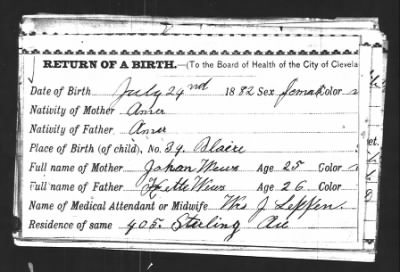 RETURN OF A BIRTH.—(To the Board of Health of the City of Clevela
Date of Birth July 24nd 1882 Sex Femal Color
Nativity of Mother Amer
Nativity of Father Amer
Place of Birth (of child), No. 39. Blaire
Full name of Mother Johan Wews Age 25 Color
Full name of Father Wews Age 26 Color
Name of Medical Attendant or Midwife Mrs J Leppen.
Residence of same 405. Starling Ave